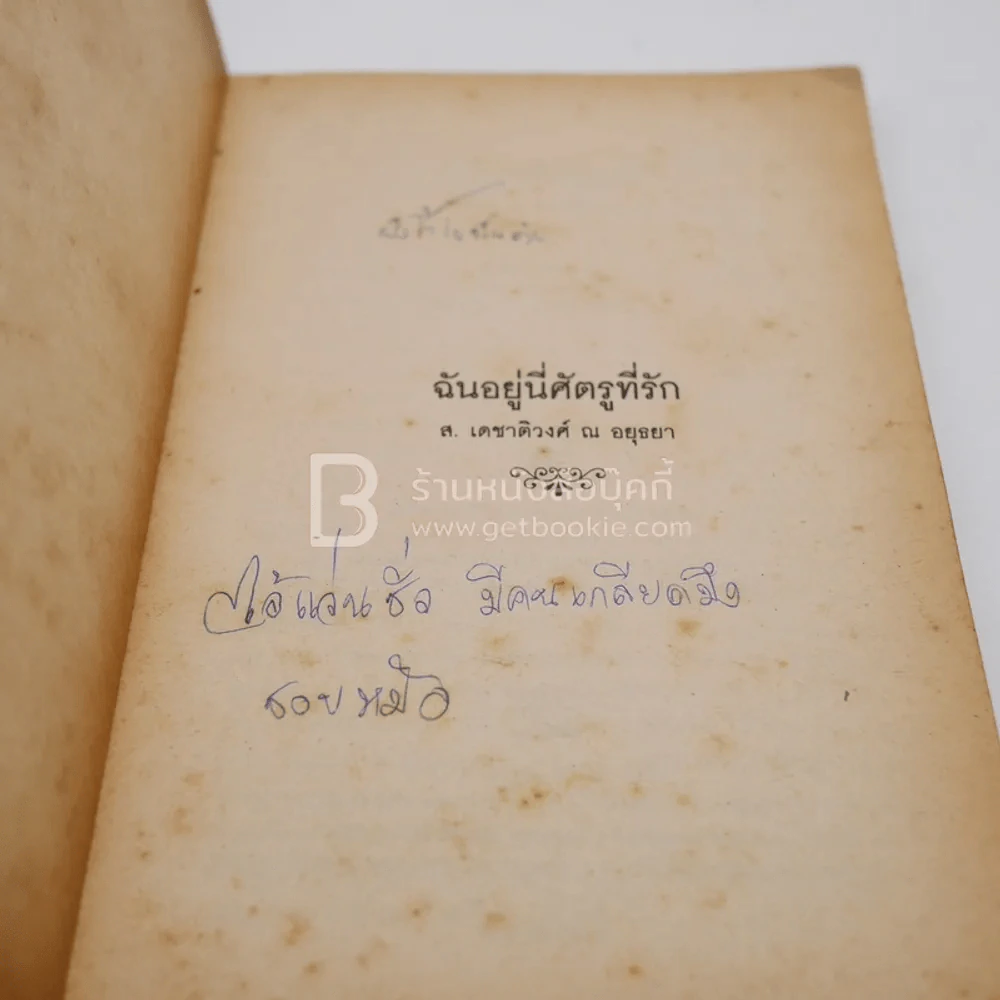 ฉันอยู่นี่ศัตรูที่รัก
ส. เดชาติวงศ์ ณ อยุธยา
ร้านหนังสือบุ๊คกี้
www.getbookie.com
ไอ้แว่นชั่ว มีคนเกลียดมึง